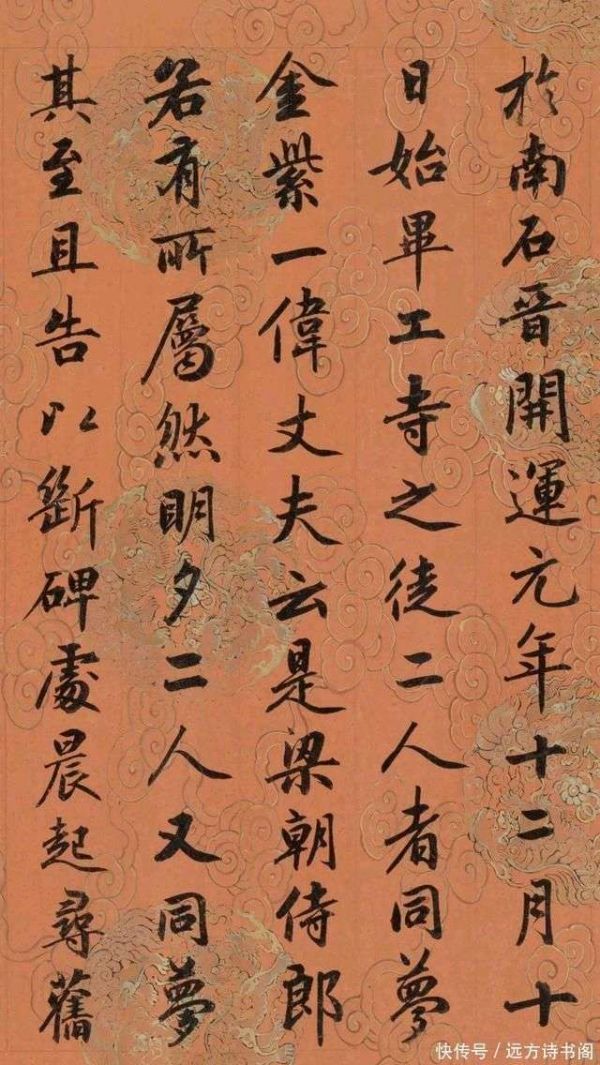 於南石晉開運元年十二月十
日始畢工寺之徒二人者同夢
金紫一偉丈夫云是梁朝侍郎
若有所屬然明夕二人又同夢
其至且告以斷碑處晨起尋舊
快传号 / 远方诗书阁